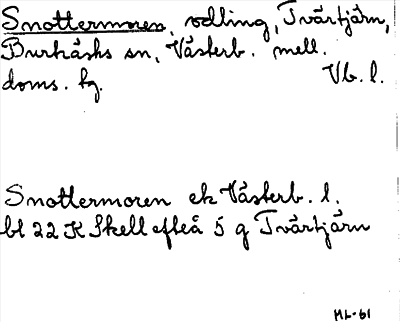 Snottermoren, odling, Tvärtjärn,
Burträsks sn, Västerb. mell.
doms. hg. Vb. l.
Snottermoren ek Västerb. l.
bl 22 K Skellefteå 5 g Tvärtjärn
ML-61